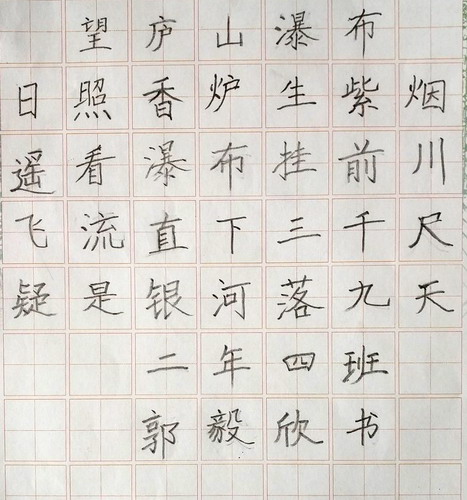 望庐山瀑布
日照香炉生紫烟
遥看瀑布挂前川
飞流直下三千尺
疑是银河落九天
二年四班
郭毅欣书